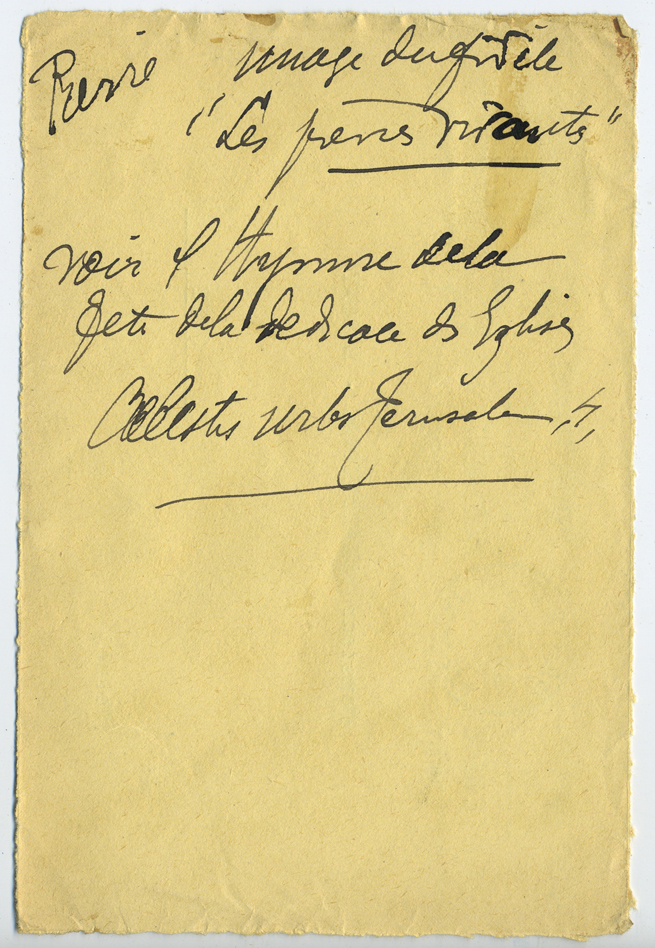 Pierre image du fidèle
"Les pierres vivantes"
voir l'Hymne de la
fete de la dedicace des Eglises
Cœlestis urbs Jerusalem